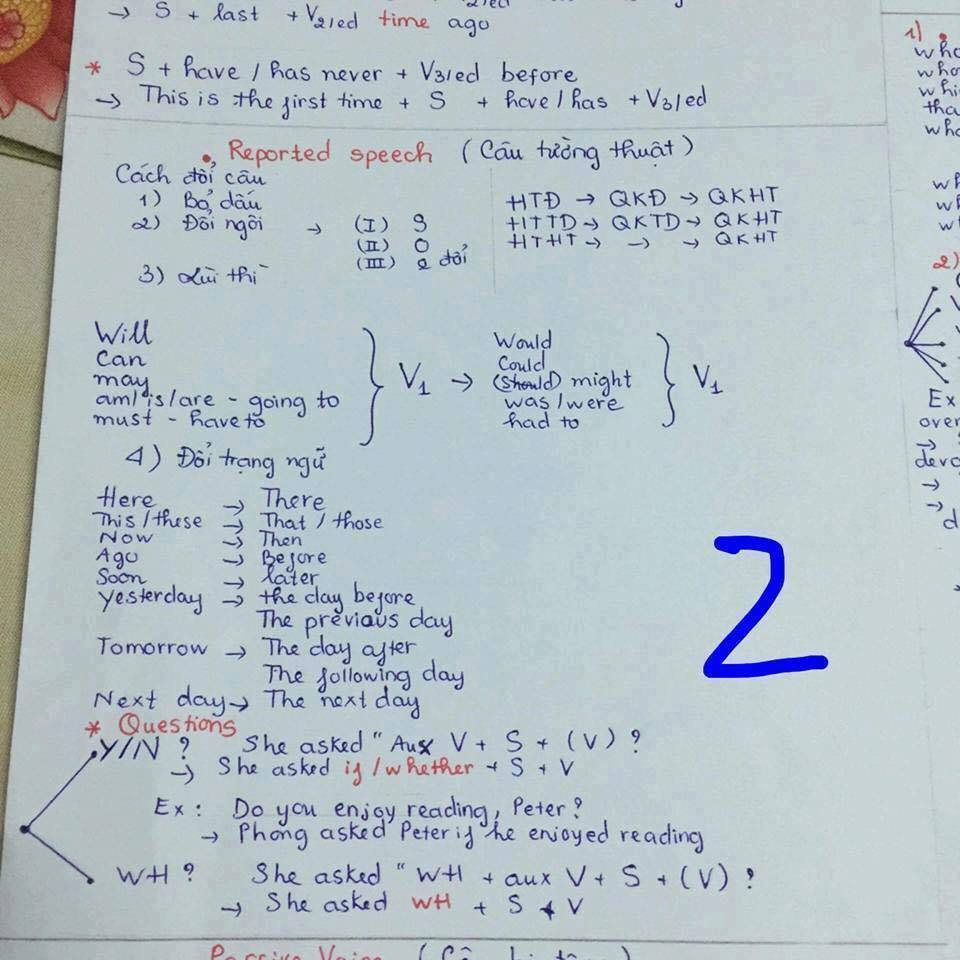 → S + last + V2/ed time ago
* S + have / has never + V3/ed before
→ This is the first time + S + have / has + V3/ed
• Reported speech (Câu tường thuật)
Cách đổi câu
1) Bỏ dấu
2) Đổi ngôi → (I) S
(II) O
(III) 2 đổi
3) Lùi thì
HTĐ → QKĐ → QKHT
HTTD → QKTD → QKHT
HTHT → → → QKHT
Will
can
may
am/is/are - going to
must - have to
} V1 →
Would
Could
(should) might
was/were
had to
} V1
4) Đổi trạng ngữ
Here → There
This / these → That / those
Now → Then
Ago → Before
Soon → later
yesterday → the day before
The previous day
Tomorrow → The day after
The following day
Next day → The next day
* Questions
Y/N ? She asked " Aux V + S + (V) ?
→ She asked if / whether + S + V
Ex : Do you enjoy reading, Peter?
→ Phong asked Peter if he enjoyed reading
WH ? She asked " WH + aux V + S + (V) ?
→ She asked WH + S + V
2
1) •
2)
Ex
over